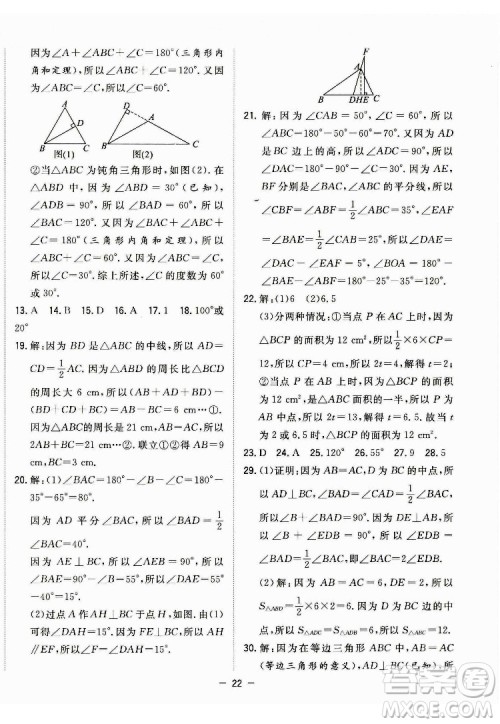 因为∠A+∠ABC+∠C=180°(三角形内
角和定理),所以∠ABC=120°. 又因为
∠A=∠C,所以∠C=60°.
A
D
B
C
图(1)
D
A
B
C
图(2)
②当△ABC为钝角三角形时,如图(2). 在
△ABD中,因为∠ABD=30°(已知),
∠ADB=90°,所以∠BAD=60°. 所以
∠BAC=120°. 因为∠BAC+∠ABC+
∠C=180°(三角形内角和定理),所以
∠ABC+∠C=60°. 因为∠ABC=∠C,所
以∠C=30°. 综上所述,∠C的度数为60°
或30°.
13. A 14. B 15. D 16. A 17. 1 18. 100°或
20°
19. 解:因为AD是△ABC的中线,所以BD=
CD=1/2BC. 因为△ABD的周长比△BCD
的周长大6 cm,所以(AB+AD+BD)-
(BD+AD+CD)=AB-BC=6 cm…①.
因为△ABC的周长是21 cm,AB=AC,所以
2AB+BC=21 cm…②. 联立①②得AB=9
cm,BC=3 cm.
20. 解:(1)∠BAC=180°-∠B-∠C=180°
-35°-65°=80°.
因为AD平分∠BAC,所以∠DAC=
1/2∠BAC=40°.
因为AE⊥BC,所以∠AEB=90°,所以
∠CAE=90°-∠C=90°-65°=25°.
所以∠DAE=∠DAC-∠CAE=40°-25°
=15°.
(2)过点A作AH⊥BC于点H,如图. 由
(1)可得∠DAH=15°. 因为AH⊥BC,FE
⊥BC,所以AH∥EF. 所以∠DFE=
∠DAH=15°.
F
A
B
D H E
C
21. 解:因为∠CAB=50°,∠C=60°,所以
∠ABC=180°-50°-60°=70°. 又因为AD
是BC边上的高,所以∠ADC=90°. 所以
∠DAC=180°-90°-∠C=30°. 因为AE,
BF分别是∠BAC和∠ABC的平分线,所以
∠CBF=∠ABF=1/2∠ABC=35°,∠EAF
=∠BAE=1/2∠CAB=25°,所以∠DAE=
∠DAC-∠EAF=5°,∠BOA=180°-
∠BAE-∠ABF=120°.
22. 解:(1)6 (2)6.5
(3)分两种情况:①当点P在AC上时,因为
△BCP的面积为12 cm²,所以1/2×6×CP=
12. 所以CP=4 cm. 所以2t=4,解得t=2.
②当点P在AB上时,因为△BCP的面积
为12 cm²,等于△ABC面积的一半,所以P为
AB中点. 所以2t=13,解得t=6.5. 故t为
2或6.5时,△BCP的面积为12 cm².
23. D 24. A 25. 120° 26. B 27. B 28. B
29. (1)证明:因为AB=AC,D为BC的中点,所
以AD⊥BC,BD=DC.
(2)解:因为BC=12,所以BD=6. 因为AD⊥
BC,所以S△ABD=1/2BD·AD. 因为AD=2,所以
S△ABD=1/2×6×2=6. 因为D为BC边的中点,
所以S△ADC=S△ABD=6.
30. 解:因为在等边三角形ABC中,AB=AC
(等边三角形的意义),AD⊥BC(已知),所
- 22 -
答案圈